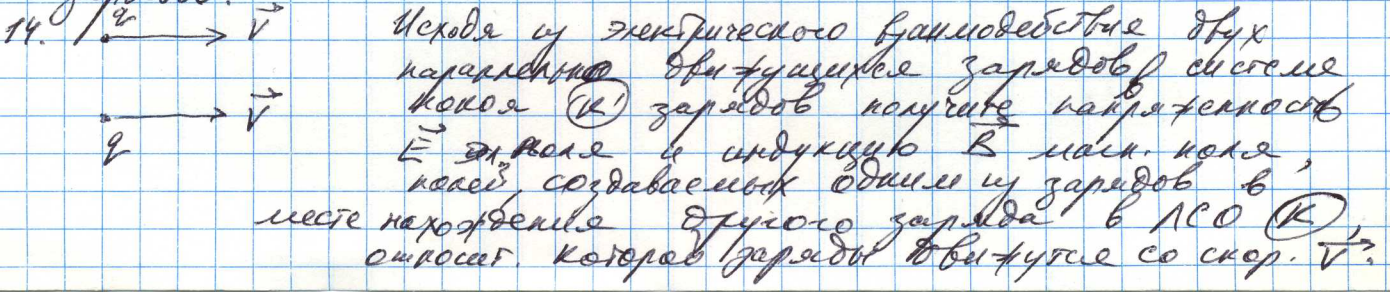 14. q V Исходя из электрического взаимодействия двух
параллельно движущихся зарядов в системе
покоя K' зарядов получите напряженность
q V E эл. поля и индукцию B магн. поля,
полей, создаваемых одним из зарядов в
месте нахождения другого заряда в ЛСО K,
относит. которой заряды движутся со скор. V.